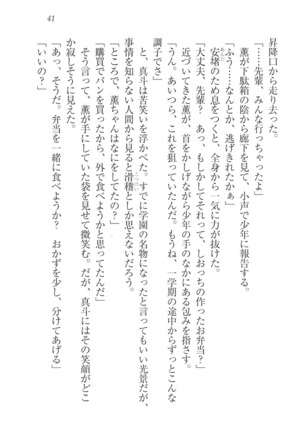 41
昇降口から走り去った。
「……先輩、みんな行っちゃったよ」
薫が下駄箱の陰から廊下を見て、小声で少年に報告する。
「ふう……なんとか、逃げきれたかぁ」
安堵のため息をつくと、全身から一気に力が抜けた。
「大丈夫、先輩？　あっ、もしかしてそれって、しおっちの作ったお弁当？」
近づいてきた薫が、首をかしげながら少年の手のなかにある包みを指さす。
「うん。あいつら、これを狙っていたんだ。もうね、一学期の途中からずっとこんな
調子でさ」
と、真斗は苦笑いを浮かべた。すでに学園の名物になったと言ってもいい光景だが、
事情を知らない人間から見ると滑稽としか思えないだろう。
「ところで、薫ちゃんはなにをしてたの？」
「購買でパンを買ったから、外で食べようかと思ってたんだ」
そう言って、薫が手にしていた袋を見て微笑む。だが、真斗にはその笑顔がどこ
か寂しそうに見えた。
「あっ、そうだ。弁当を一緒に食べようか？　おかずを少し、分けてあげる」
「いいの？」